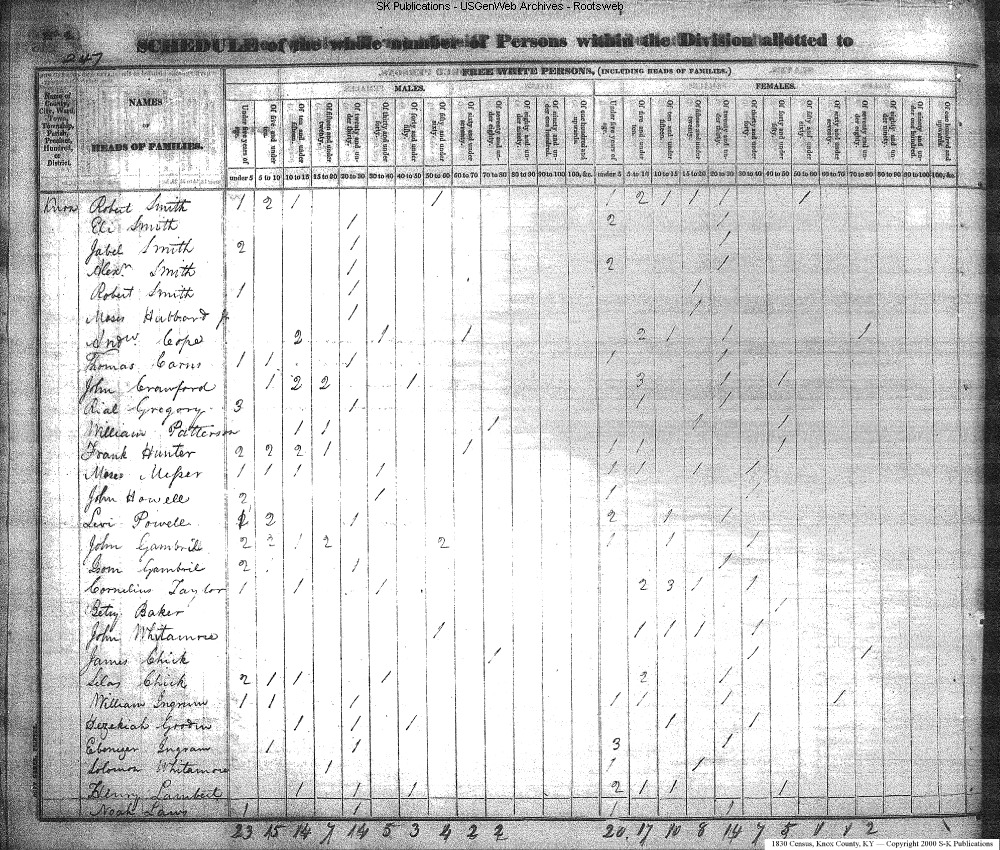 SK Publications - USGenWeb Archives - Rootsweb
247
SCHEDULE of the whole number of Persons within the Division allotted to
FREE WHITE PERSONS, (INCLUDING HEADS OF FAMILIES.)
MALES. FEMALES.
Name of County, City, Ward, Town, Township, Parish, Precinct, Hundred, or District.
NAMES
OF
HEADS OF FAMILIES.
under 5 5 to 10 10 to 15 15 to 20 20 to 30 30 to 40 40 to 50 50 to 60 60 to 70 70 to 80 80 to 90 90 to 100 100, &c. under 5 5 to 10 10 to 15 15 to 20 20 to 30 30 to 40 40 to 50 50 to 60 60 to 70 70 to 80 80 to 90 90 to 100 100, &c.
Knox Robert Smith 1 2 1 1 1 2 1 1 1 1
Eli Smith 1 2 1
Jabel Smith 2 1 1
Alexr Smith 1 2 1
Robert Smith 1 1 1
Moses Hubbard Jr 1 1
Andw Cope 2 1 1 2 1 1 1
Thomas Carns 1 1 1 1 1
John Crawford 1 2 2 1 3 1 1
Rial Gregory 3 1 1 1
William Patterson 1 1 1 1 1
Frank Hunter 2 2 2 1 1 1 1 1
Moses Messer 1 1 1 1 1 1 1 1 1
John Howell 2 1 1 1
Levi Powell 2 1 2 1 1
John Gambril 2 2 1 2 2 1 1 1
Isom Gambril 2 1 1
Cornelius Taylor 1 1 1 2 3 1 1
Betsy Baker 1
John Whitamore 1 1 1 1 1
James Chick 1 1 1
Silas Chick 2 1 1 1 2 1
William Ingrum 1 1 1 1 1 1 1
Hezekiah Goodin 1 1 1 1 1
Ebenezer Ingram 1 1 3 1
Solomon Whitamore 1 1 1
Henry Lambert 1 1 1 2 1 1 1
Noah Laws 1 1 1 1
23 15 14 7 14 5 3 4 2 2 20 17 10 8 14 7 5 1 1 2
1830 Census, Knox County, KY — Copyright 2000 S-K Publications